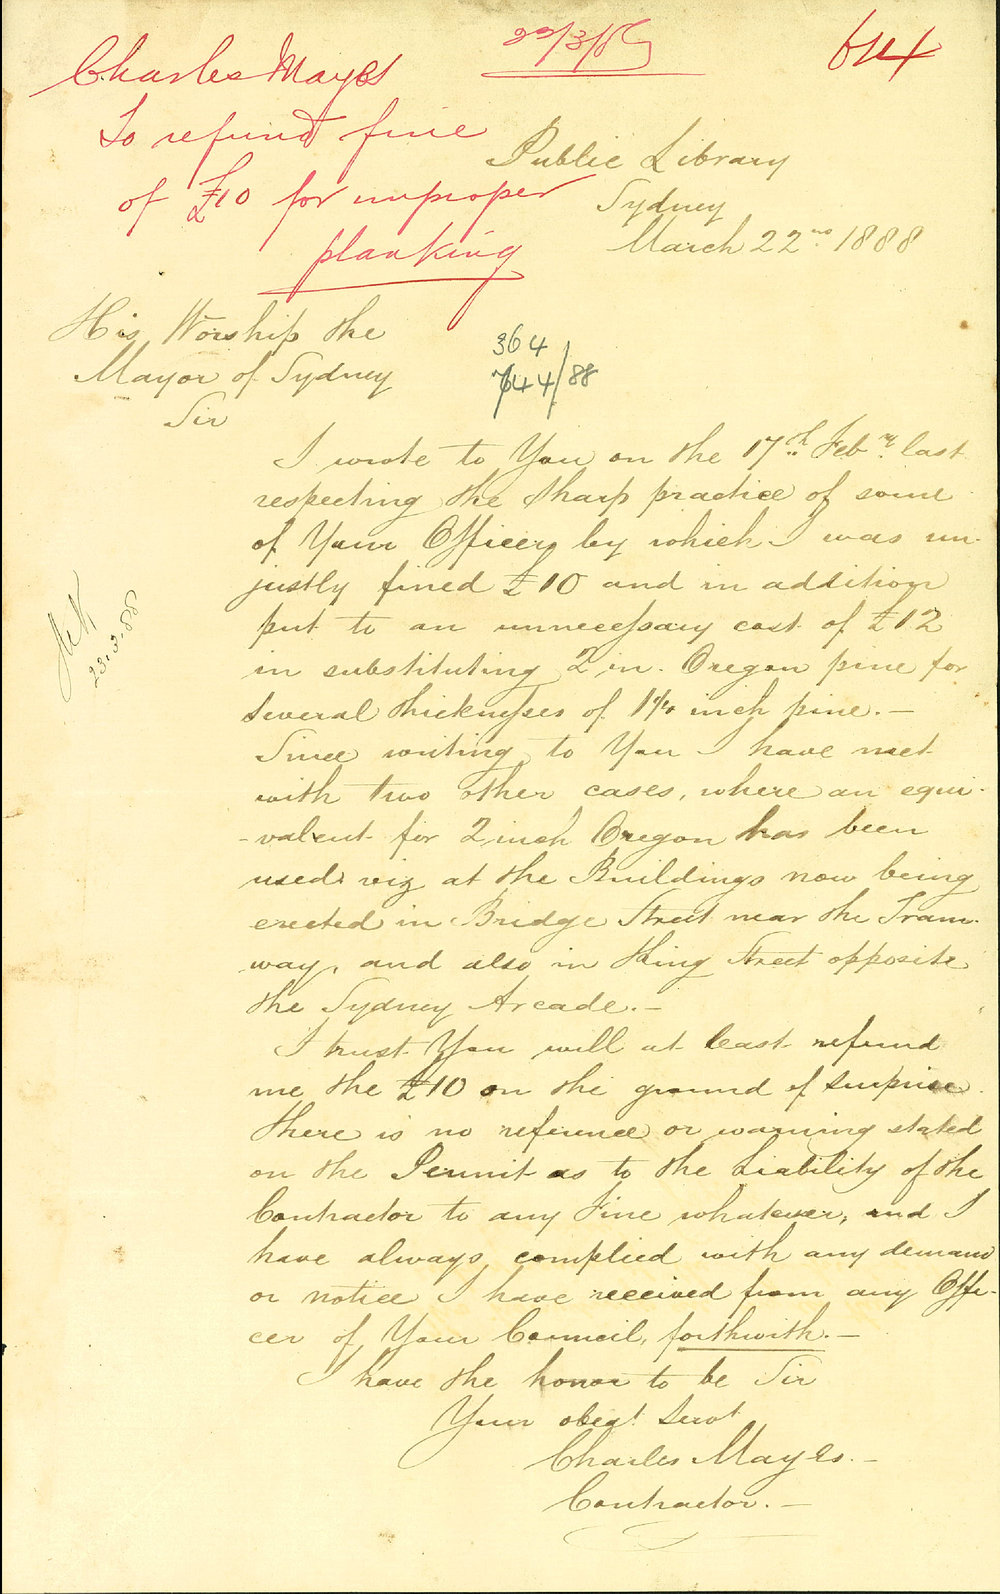 22/3/8
Charles Mayes
To refund fine
of £10 for improper
planking
Public Library
Sydney
March 22nd 1888
His Worship the
Mayor of Sydney
Sir
364
744/88
I wrote to You on the 17th Feby last
respecting the sharp practice of some
of Your Officers by which I was un-
justly fined £10 and in addition
put to an unnecessary cost of £12
in substituting 2 in. Oregon pine for
several thicknesses of 1¼ inch pine.—
Since writing to You I have met
with two other cases, where an equi-
-valent for 2 inch Oregon has been
used viz at the Buildings now being
erected in Bridge Street near the Tram-
way, and also in King Street opposite
the Sydney Arcade.—
I trust You will at least refund
me the £10 on the ground of surprise
there is no reference or warning stated
on the Permit as to the Liability of the
Contractor to any Fine whatever, and I
have always complied with any demand
or notice I have received from any Offi-
cer of Your Council, forthwith.—
I have the honor to be Sir
Your obedt Servt
Charles Mayes.—
Contractor.—
23.3.88